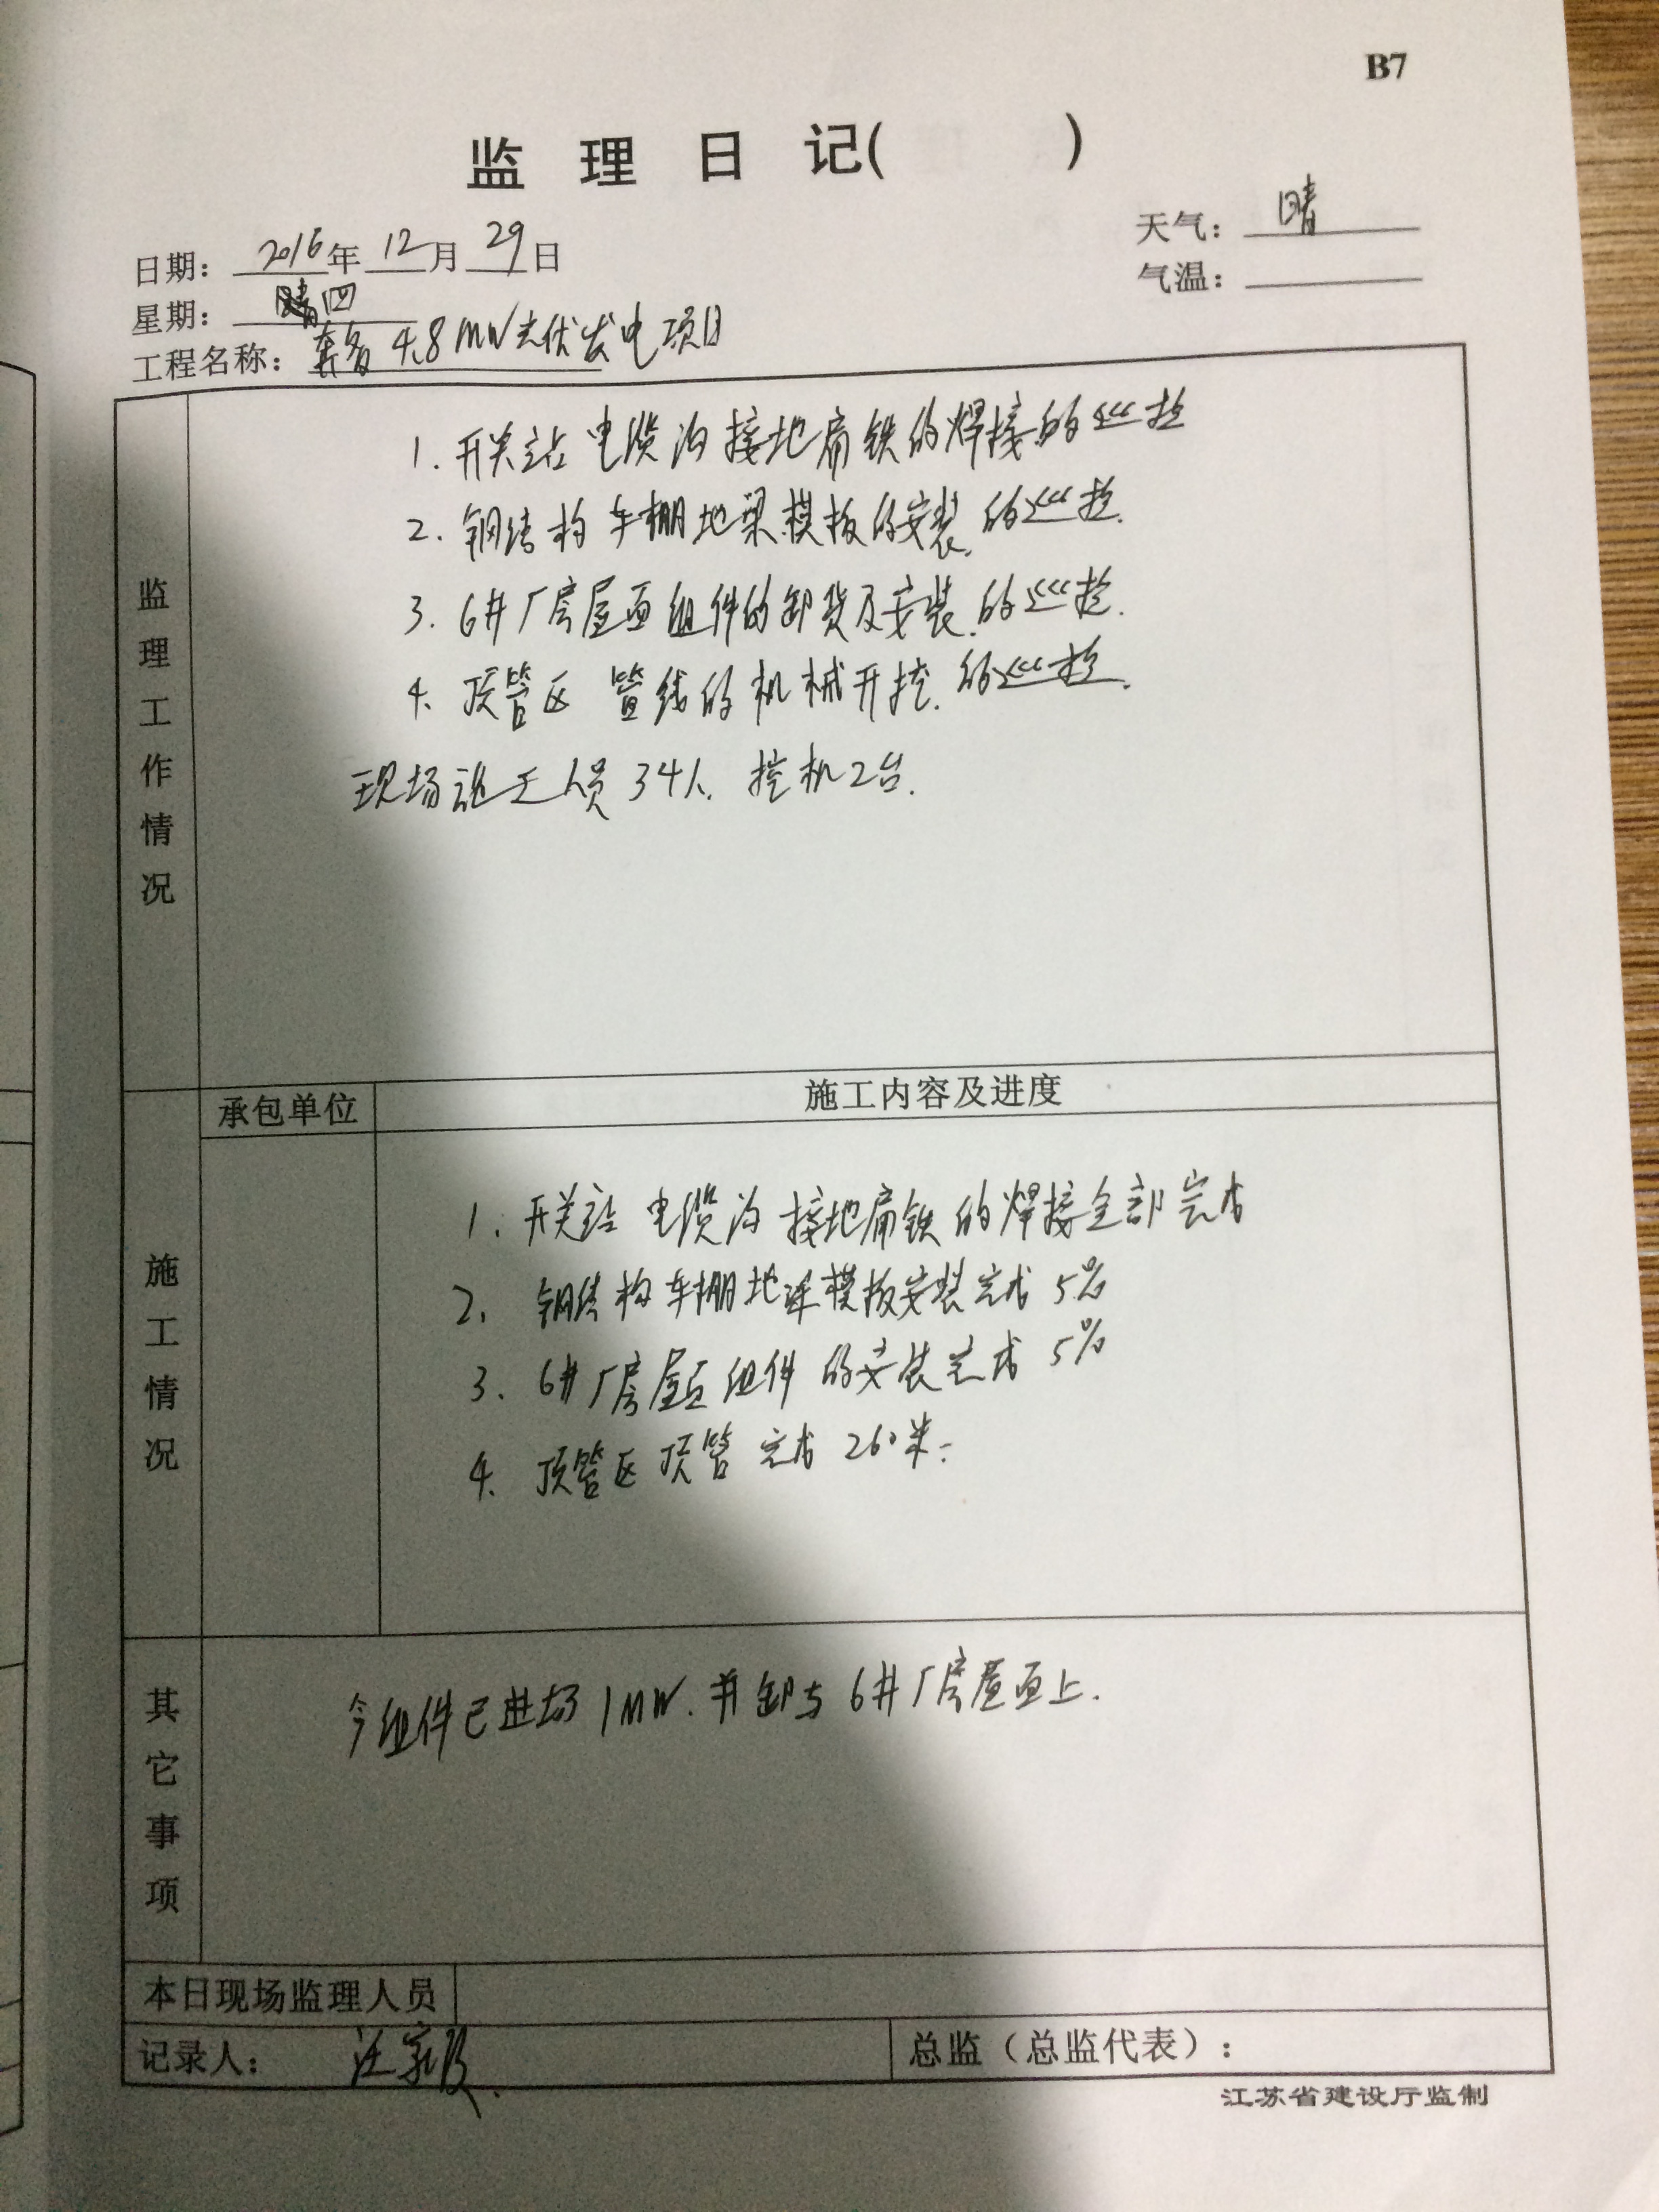 B7
监 理 日 记( )
日期: 2016年 12月 29日
天气: 晴
星期: 四
气温:
工程名称: 4.8MW光伏发电项目
监理工作情况
1. 开关站电缆沟接地扁铁的焊接的巡检
2. 钢结构车棚地梁模板的安装的巡检.
3. 6#厂房屋面组件的卸货及安装的巡检.
4. 顶管区 管线的机械开挖.的巡检.
现场施工人员34人. 挖机2台.
施工情况
承包单位
施工内容及进度
1. 开关站 电缆沟 接地扁铁的焊接全部完成
2. 钢结构车棚地梁模板安装完成5%
3. 6#厂房屋面组件的安装完成5%
4. 顶管区顶管完成260米.
其它事项
今组件已进场1MW.并卸与6#厂房屋面上.
本日现场监理人员
记录人: 汪家
总监（总监代表）:
江苏省建设厅监制